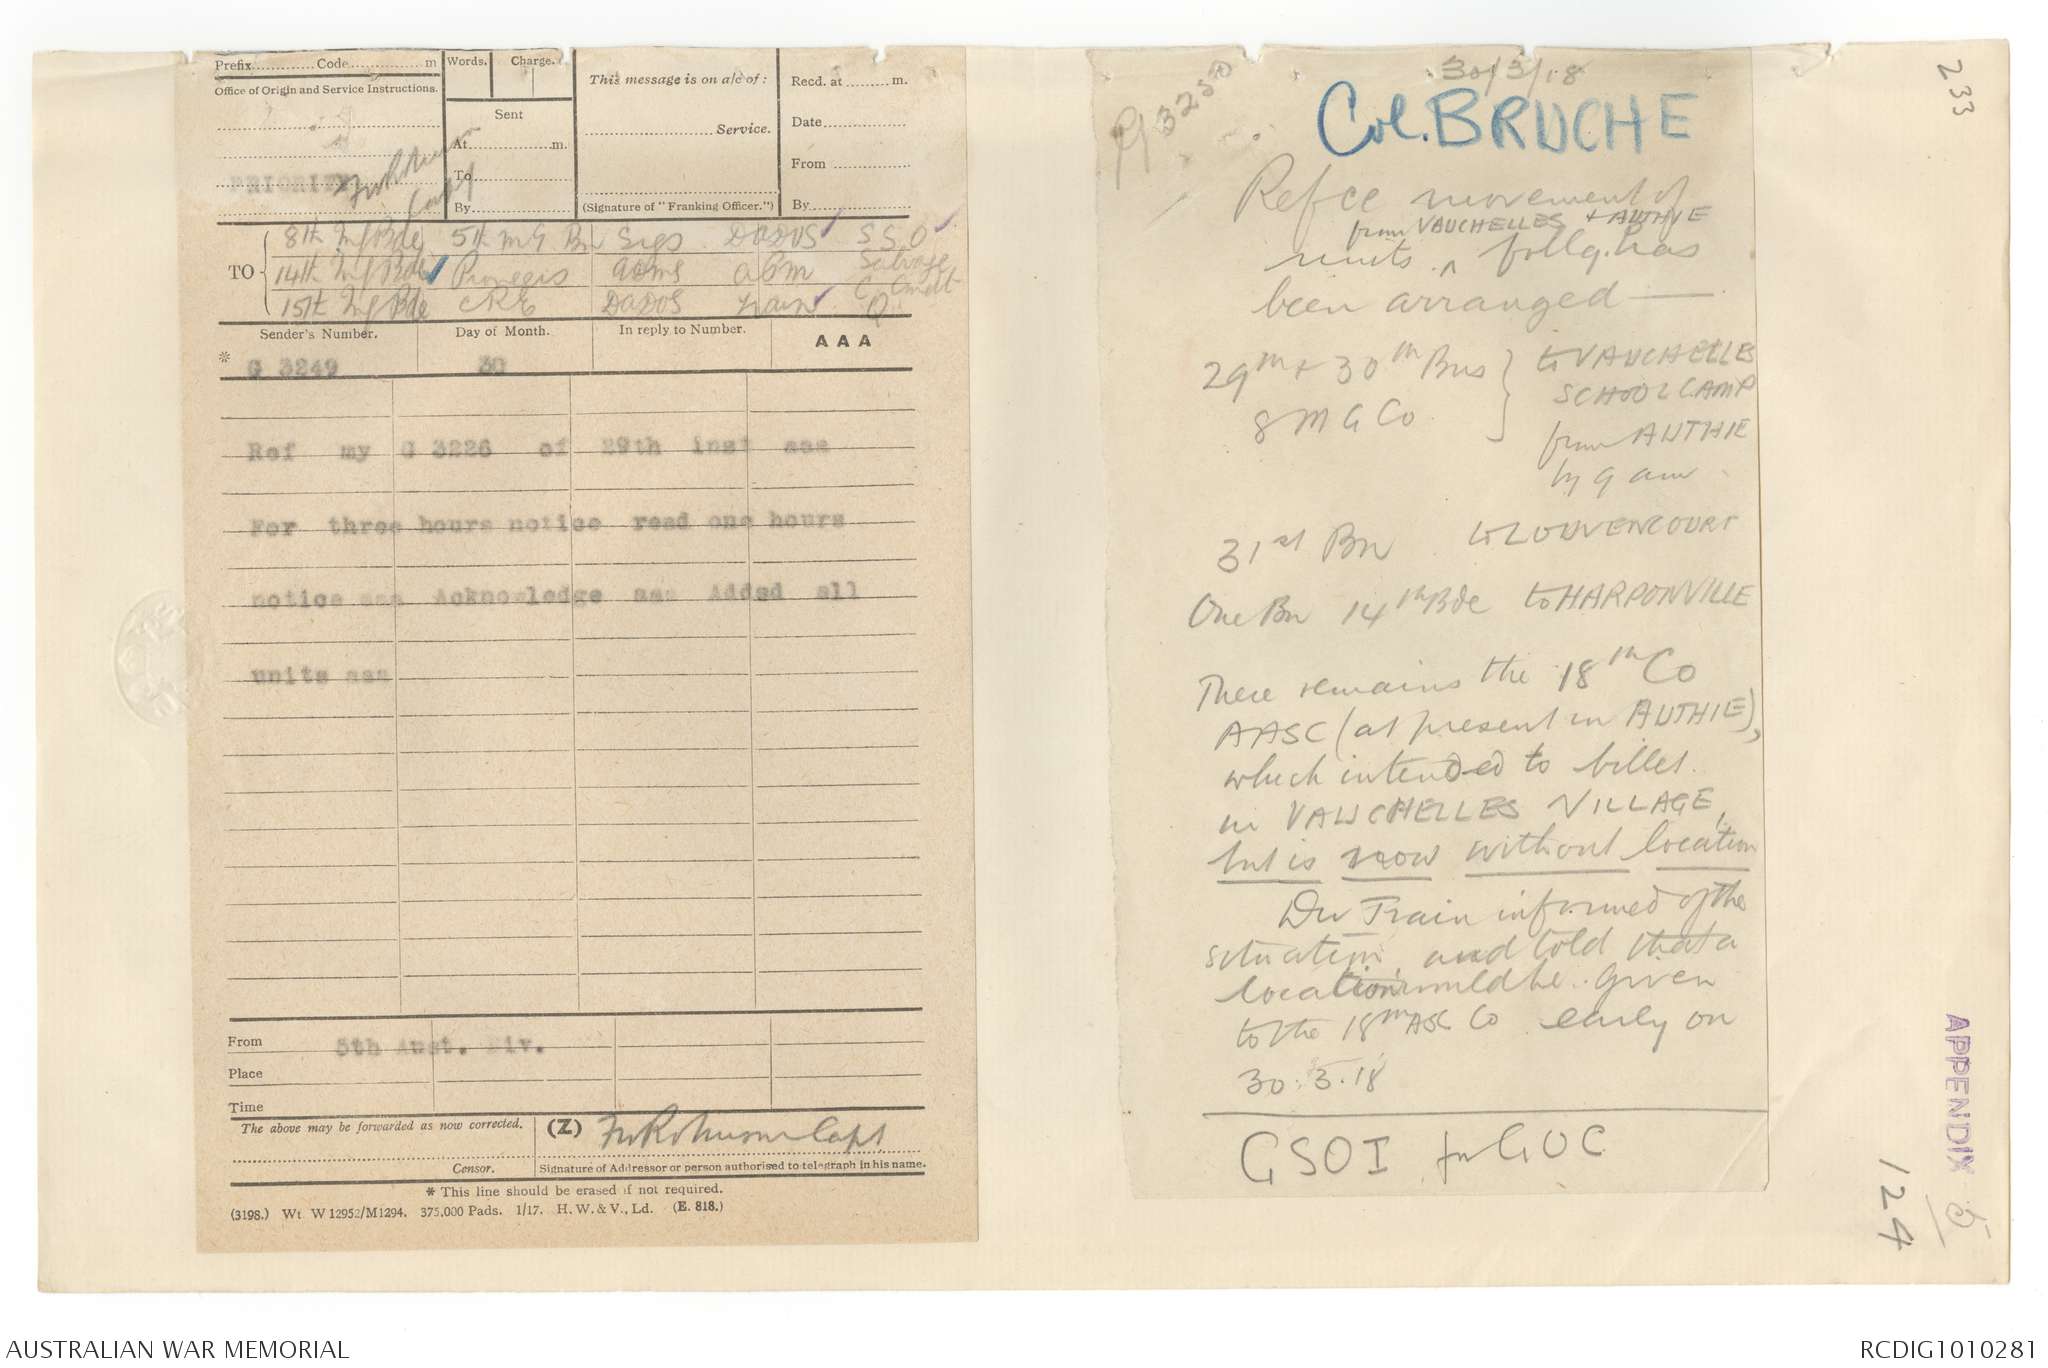 Prefix............Code..................m
Words.
Charge.
Office of Origin and Service Instructions.
PRIORITY
Capt
Sent
At..................m.
To
By
This message is on a/c of:
Service.
(Signature of "Franking Officer.")
Recd. at ......... m.
Date
From
By
TO
8th Inf Bde 5th M G Bn Sigs DADVS S S O
14th Inf Bde Pioneers ADMS APM Salvage
15th Inf Bde CRE DADOS Train Q
Sender's Number.
Day of Month.
In reply to Number.
AAA
* G 3249 30
Ref my G 3226 of 29th inst aaa
For three hours notice read one hours
notice aaa Acknowledge aaa Added all
units aaa
From 5th Aust. Div.
Place
Time
The above may be forwarded as now corrected.
(Z)
Capt
Censor.
Signature of Addressor or person authorised to telegraph in his name.
* This line should be erased if not required.
(3198.) Wt. W12952/M1294. 375,000 Pads. 1/17. H. W. & V., Ld. (E. 818.)
30/3/18
G 3250
Col. BRUCHE
Refce movement of
from VAUCHELLES + AUTHIE
units ^ follg. has
been arranged —
29th + 30th Bns } to VAUCHELLES
8 M G Co SCHOOL CAMP
from AUTHIE
by 9 am
31st Bn to LOUVENCOURT
One Bn 14th Bde to HARPONVILLE
There remains the 18th Co
AASC (at present in AUTHIE),
which intended to billet
in VAUCHELLES VILLAGE,
but is now without location
Div Train informed of the
situation and told that a
location would be given
to the 18th ASC Co early on
30.3.18
GSOI for GOC
233
APPENDIX 5
124
AUSTRALIAN WAR MEMORIAL
RCDIG1010281